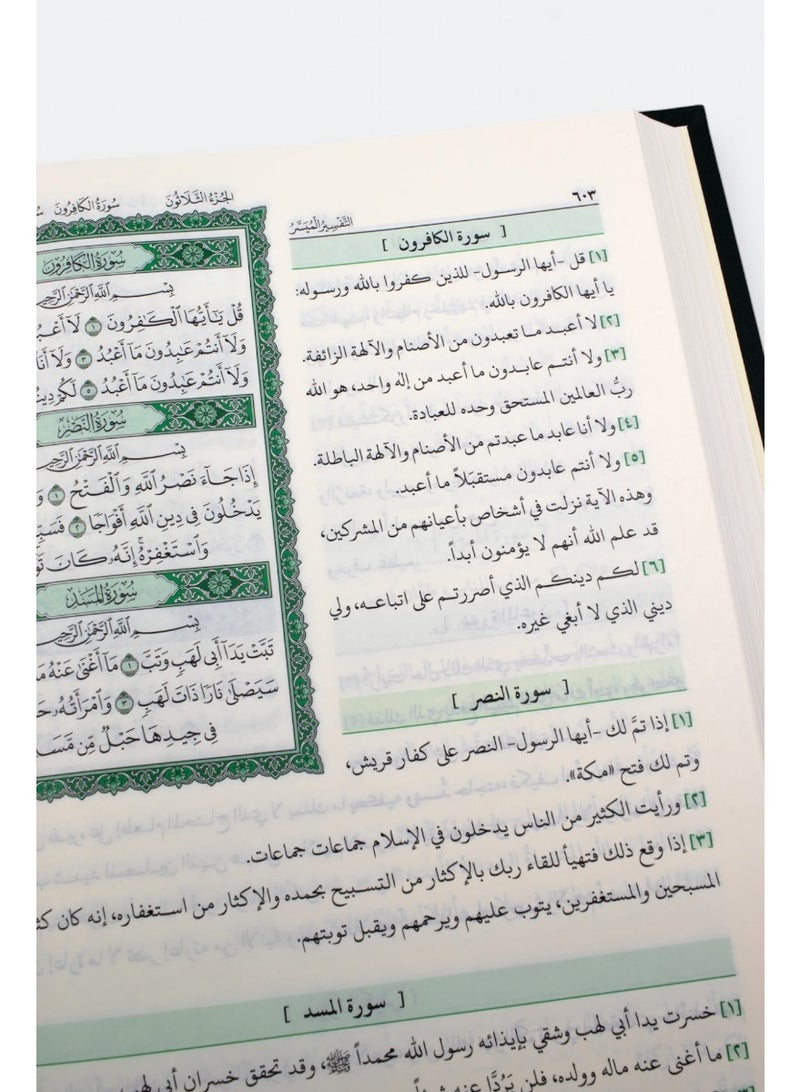 ٦٠٣
الجُزْءُ الثَّلَاثُونَ سُورَةُ الكَافِرُونَ
التَّفْسِيرُ الْمُيَسَّرُ
سُورَةُ الكَافِرُونَ
بِسْمِ اللَّهِ الرَّحْمَٰنِ الرَّحِيمِ
قُلْ يَٰٓأَيُّهَا ٱلْكَٰفِرُونَ ١ لَآ أَعْبُدُ
وَلَآ أَنتُمْ عَٰبِدُونَ مَآ أَعْبُدُ ٣ وَلَآ أَنَا۠
وَلَآ أَنتُمْ عَٰبِدُونَ مَآ أَعْبُدُ ٥ لَكُمْ
سُورَةُ النَّصْرِ
بِسْمِ اللَّهِ الرَّحْمَٰنِ الرَّحِيمِ
إِذَا جَآءَ نَصْرُ ٱللَّهِ وَٱلْفَتْحُ ١
يَدْخُلُونَ فِى دِينِ ٱللَّهِ أَفْوَاجًا ٢
وَٱسْتَغْفِرْهُ إِنَّهُۥ كَانَ
سُورَةُ المَسَدِ
بِسْمِ اللَّهِ الرَّحْمَٰنِ الرَّحِيمِ
تَبَّتْ يَدَآ أَبِى لَهَبٍ وَتَبَّ ١ مَآ أَغْنَىٰ عَنْهُ
سَيَصْلَىٰ نَارًا ذَاتَ لَهَبٍ ٣ وَٱمْرَأَتُهُۥ
فِى جِيدِهَا حَبْلٌ مِّن
[ سورة الكافرون ]
[١] قل -أيها الرسول- للذين كفروا بالله ورسوله:
يا أيها الكافرون بالله.
[٢] لا أعبد ما تعبدون من الأصنام والآلهة الزائفة.
[٣] ولا أنتم عابدون ما أعبد من إله واحد، هو الله
ربُّ العالمين المستحق وحده للعبادة.
[٤] ولا أنا عابد ما عبدتم من الأصنام والآلهة الباطلة.
[٥] ولا أنتم عابدون مستقبَلاً ما أعبد.
وهذه الآية نزلت في أشخاص بأعيانهم من المشركين،
قد علم الله أنهم لا يؤمنون أبداً.
[٦] لكم دينكم الذي أصررتم على اتباعه، ولي
ديني الذي لا أبغي غيره.
[ سورة النصر ]
[١] إذا تمَّ لك -أيها الرسول- النصر على كفار قريش،
وتم لك فتح «مكة».
[٢] ورأيت الكثير من الناس يدخلون في الإسلام جماعات جماعات.
[٣] إذا وقع ذلك فتهيأ للقاء ربك بالإكثار من التسبيح بحمده والإكثار من استغفاره، إنه كان
المسبحين والمستغفرين، يتوب عليهم ويرحمهم ويقبل توبتهم.
[ سورة المسد ]
[١] خسرت يدا أبي لهب وشقي بإيذائه رسول الله محمداً ﷺ، وقد تحقق خسران أبي لهب
[٢] ما أغنى عنه ماله وولده، فلن يَرُدَّا عنه شيئاً